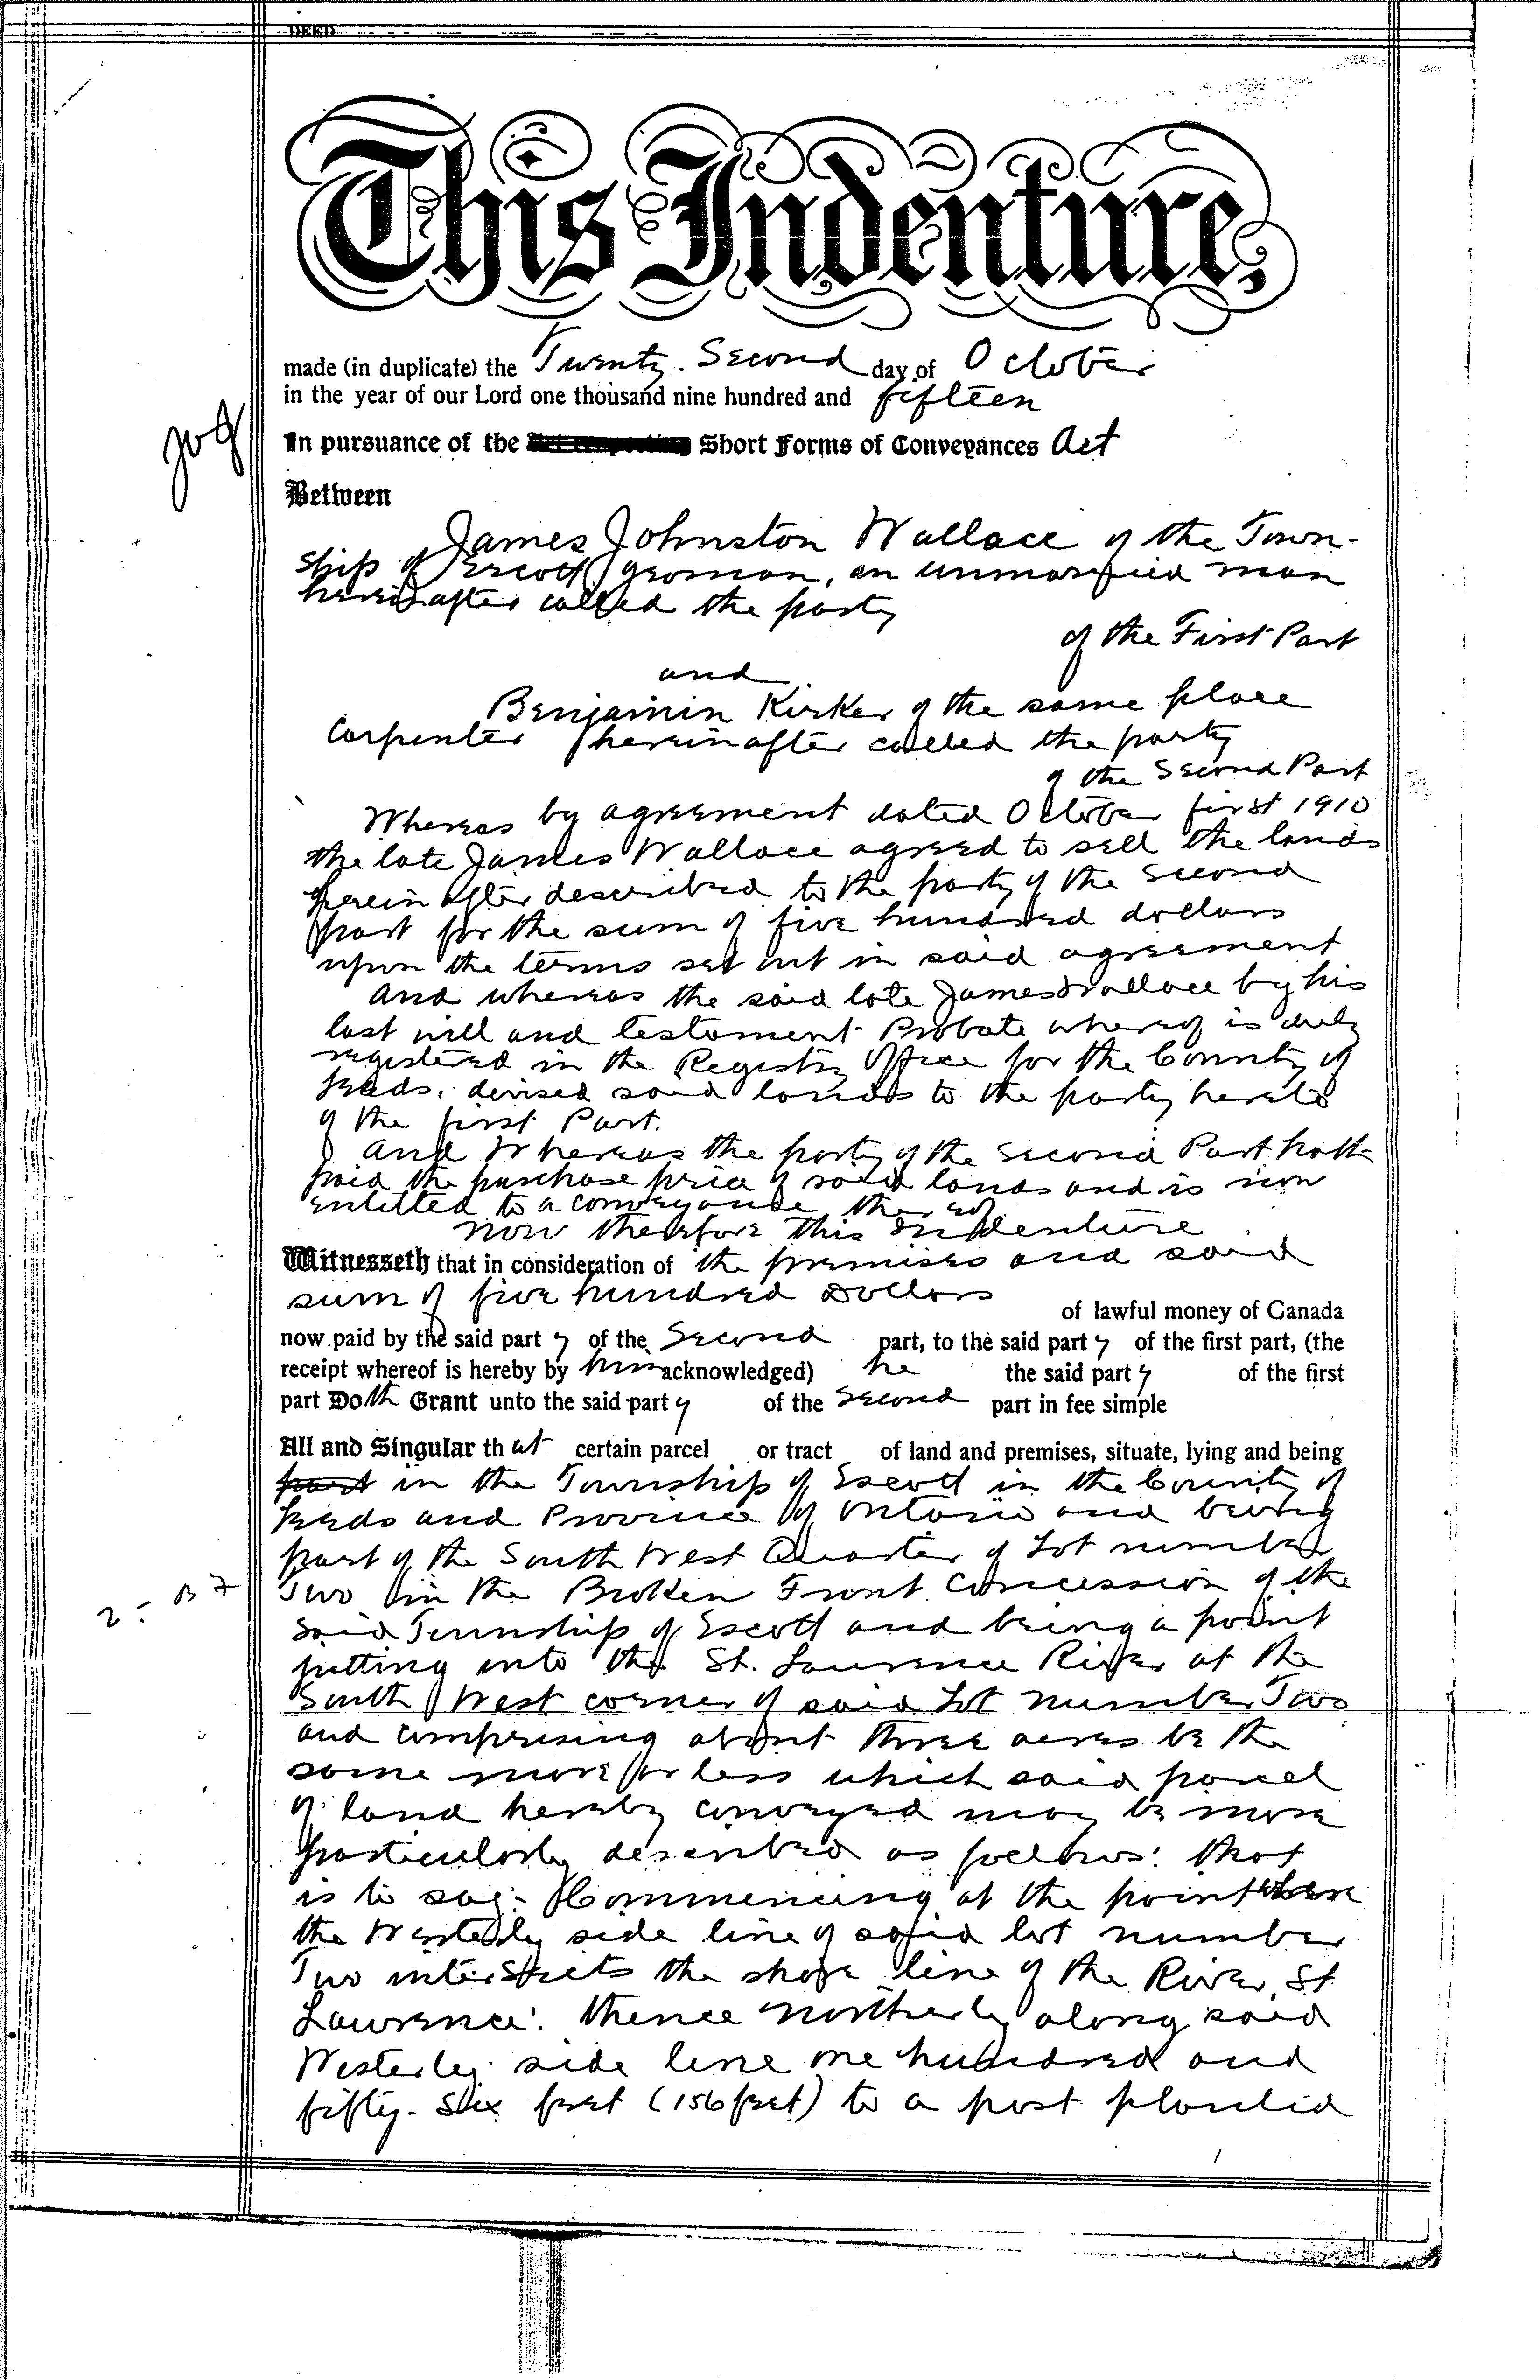 DEED
This Indenture,
made (in duplicate) the Twenty. Second day of October
in the year of our Lord one thousand nine hundred and fifteen
In pursuance of the Short Forms of Conveyances Act
Between
James Johnston Wallace of the Town-
ship of Escott yeoman, an unmarried man
hereinafter called the party
of the First Part
and
Benjamin Kirker of the same place
Carpenter hereinafter called the party
of the Second Part
Whereas by agreement dated October first 1910
the late James Wallace agreed to sell the lands
herein after described to the party of the Second
part for the sum of five hundred dollars
upon the terms set out in said agreement
And whereas the said late James Wallace by his
last will and testament Probate whereof is duly
registered in the Registry Office for the County of
Leeds. devised said lands to the party hereto
of the first Part.
And Whereas the party of the Second Part hath
paid the purchase price of said lands and is now
entitled to a conveyance thereof
Now therefore this Indenture
Witnesseth that in consideration of the premises and said
sum of five hundred Dollars of lawful money of Canada
now paid by the said party of the Second part, to the said party of the first part, (the
receipt whereof is hereby by him acknowledged) he the said party of the first
part Doth Grant unto the said party of the Second part in fee simple
All and Singular that certain parcel or tract of land and premises, situate, lying and being
part in the Township of Escott in the County of
Leeds and Province of Ontario and being
part of the South West Quarter of Lot number
2 - B F Two in the Broken Front Concession of the
said Township of Escott and being a point
jutting into the St. Lawrence River at the
South West corner of said Lot number Two
and comprising about three acres be the
same more or less which said parcel
of land hereby conveyed may be more
particularly described as follows: that
is to say:- Commencing at the point where
the Westerly side line of said lot number
Two intersects the shore line of the River St.
Lawrence: thence northerly along said
Westerly side line one hundred and
fifty-six feet (156 feet) to a post planted